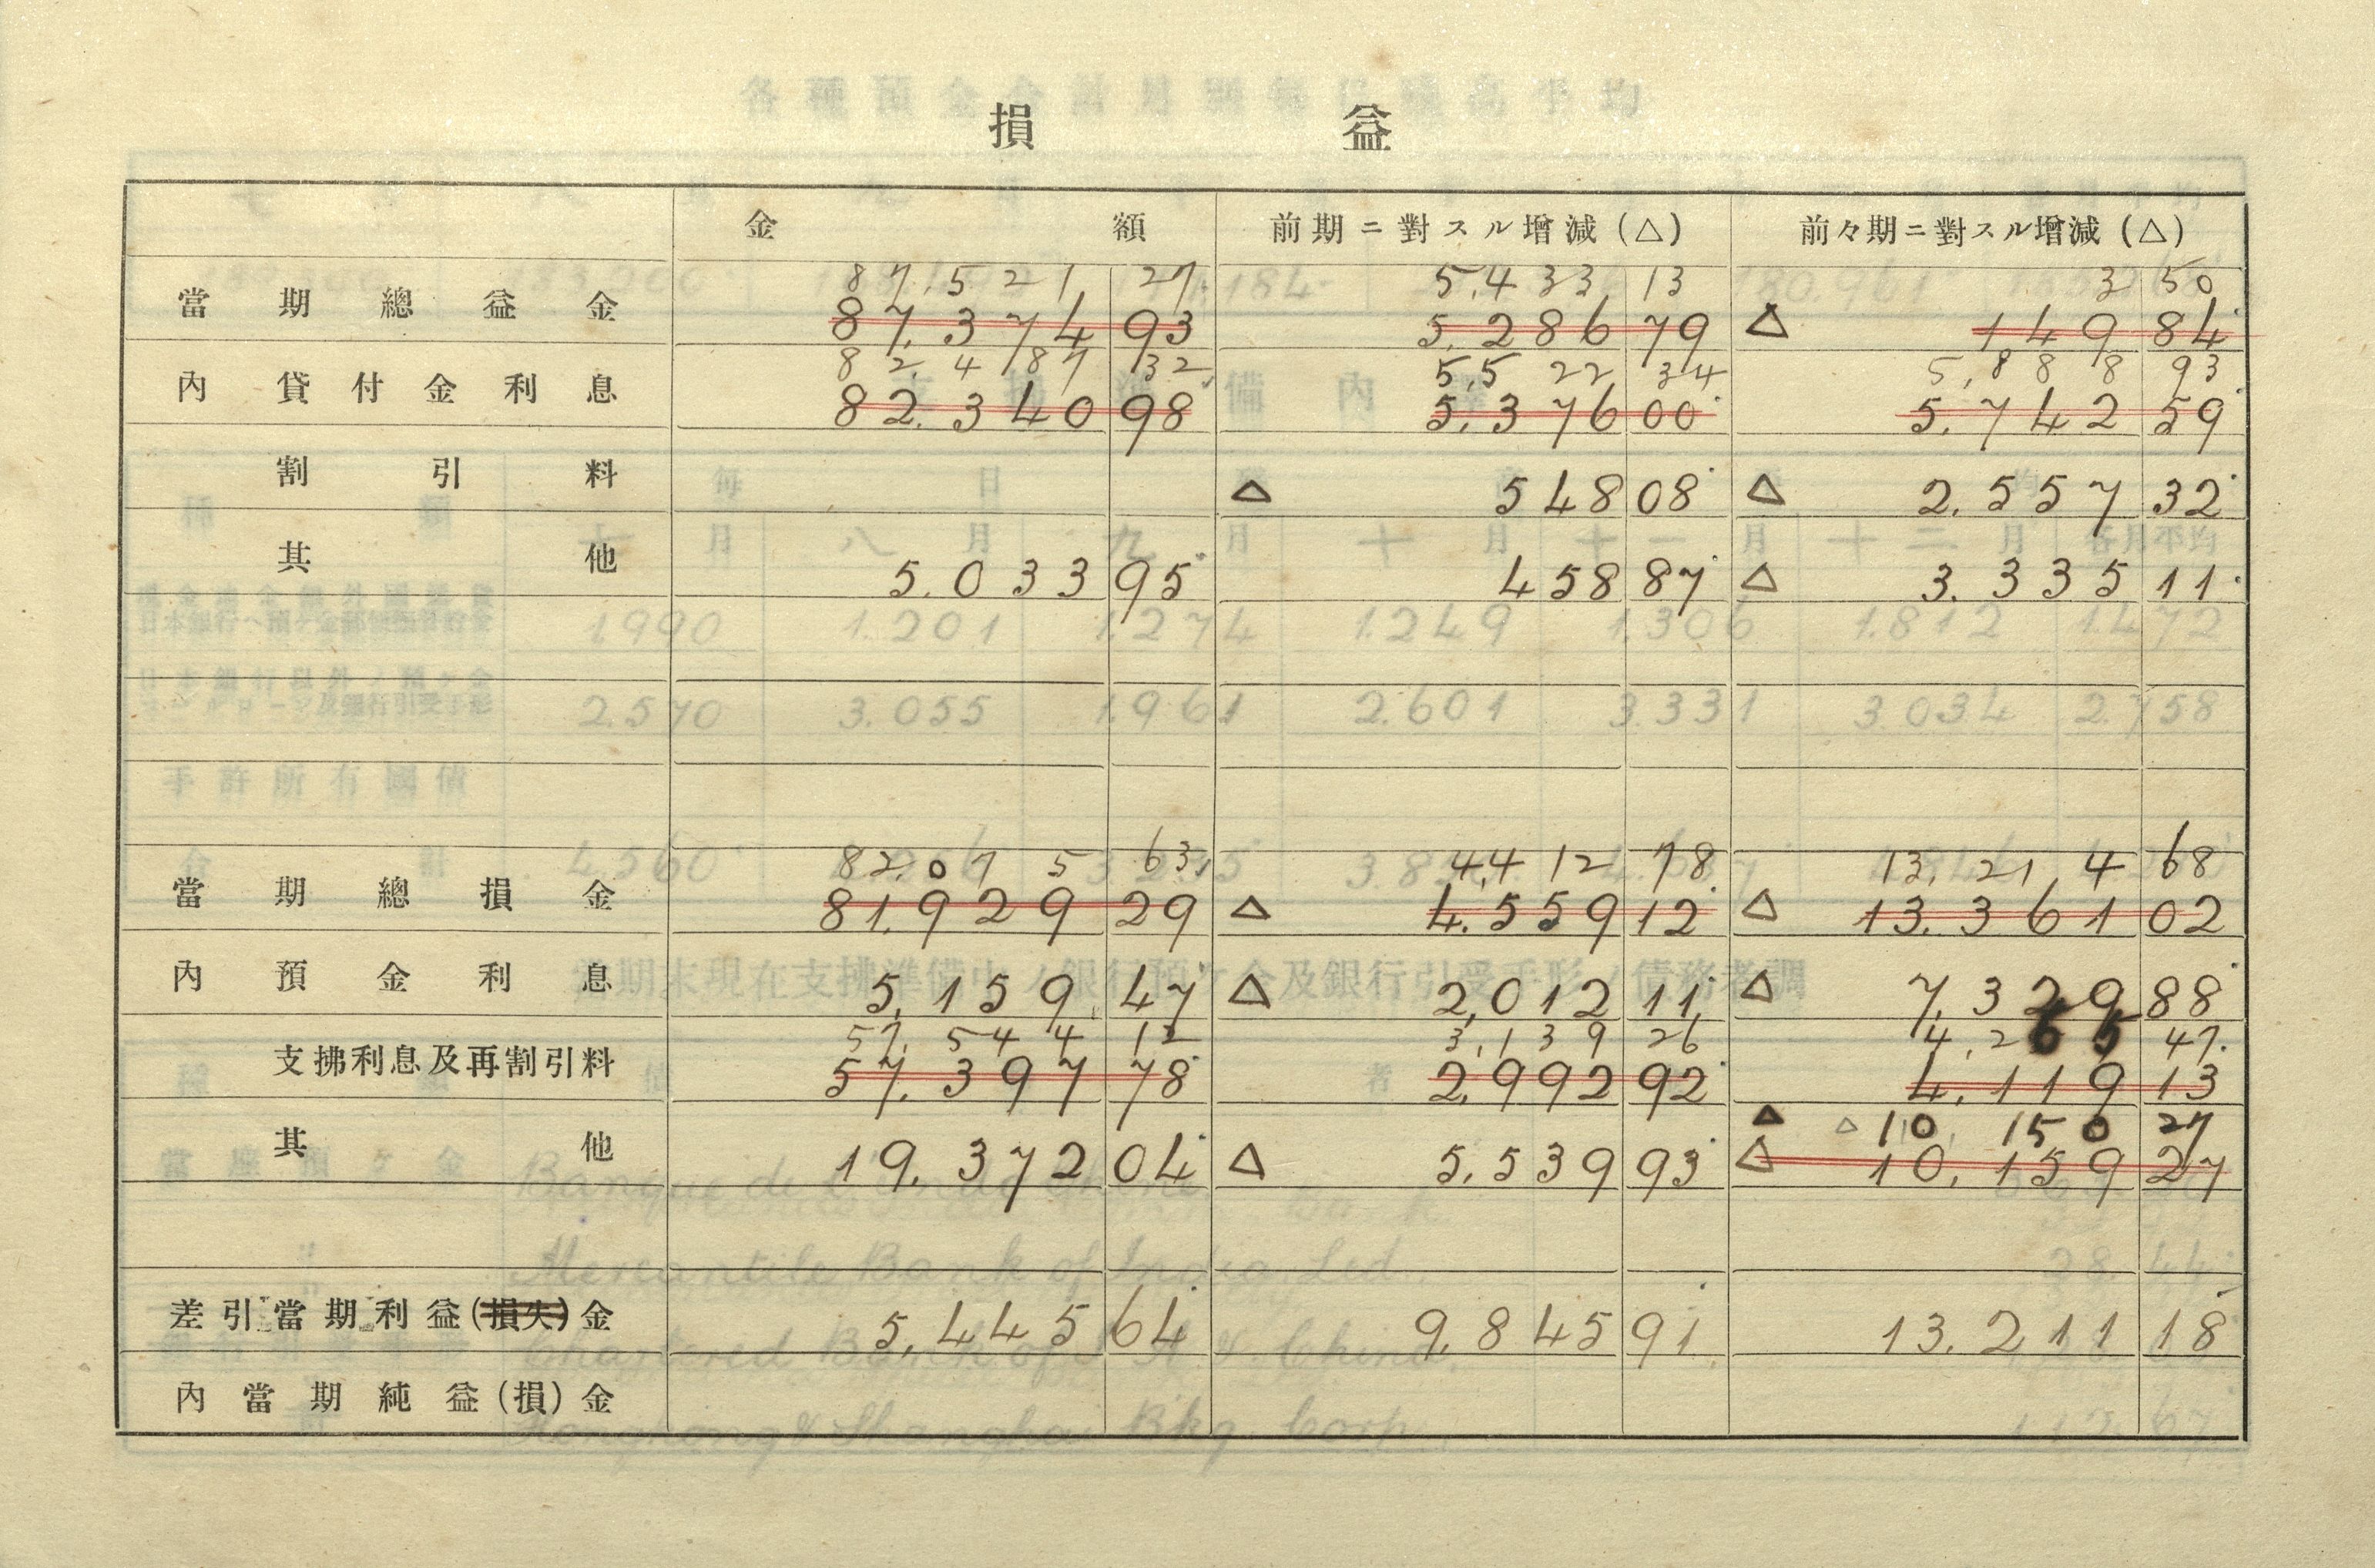 損益
金額 前期ニ對スル增減(△) 前々期ニ對スル增減(△)
87,521 27 5,433 13 3 50
當期總益金 87,374 93 5,286 79 △ 149 84
82,487 32 5,522 34 5,888 93
內貸付金利息 82,340 98 5,376 00 5,742 59
割引料 △ 548 08 △ 2,557 32
其他 5,033 95 458 87 △ 3,335 11
82,075 63 4,412 78 13,214 68
當期總損金 81,929 29 △ 4,559 12 △ 13,361 02
內預金利息 5,159 47 △ 2,012 11 △ 7,329 88
57,544 12 3,139 26 4,265 47
支拂利息及再割引料 57,397 78 2,992 92 4,119 13
△ △ 10,150 27
其他 19,372 04 △ 5,539 93 △ 10,159 27
差引當期利益(損失)金 5,445 64 9,845 91 13,211 18
內當期純益(損)金